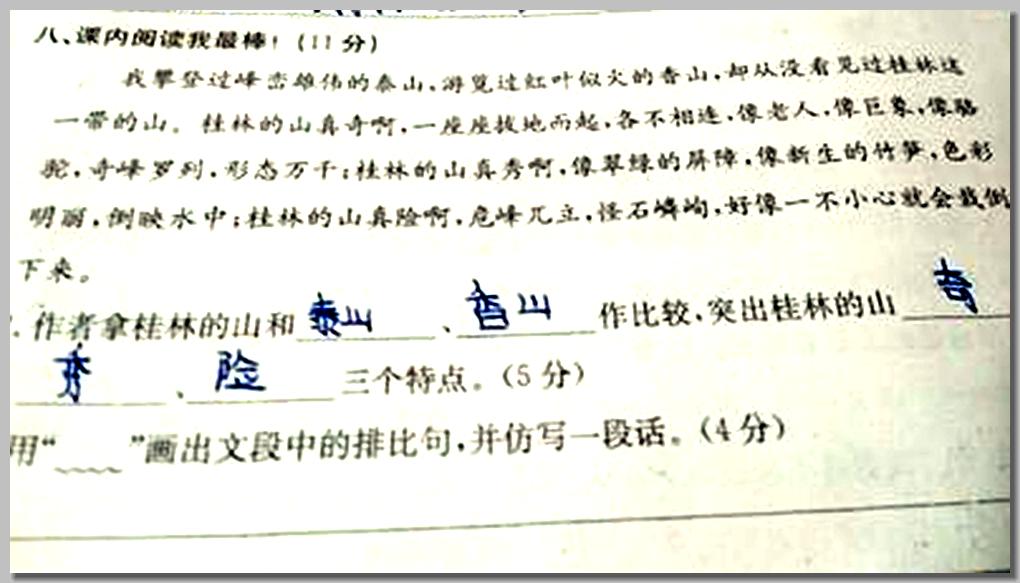 八、课内阅读我最棒！(11分)
我攀登过峰峦雄伟的泰山,游览过红叶似火的香山,却从没看见过桂林这
一带的山。桂林的山真奇啊,一座座拔地而起,各不相连,像老人,像巨象,像骆
驼,奇峰罗列,形态万千;桂林的山真秀啊,像翠绿的屏障,像新生的竹笋,色彩
明丽,倒映水中;桂林的山真险啊,危峰兀立,怪石嶙峋,好像一不小心就会栽倒
下来。
作者拿桂林的山和泰山、香山作比较,突出桂林的山奇
秀、险三个特点。(5分)
用“ ”画出文段中的排比句,并仿写一段话。(4分)